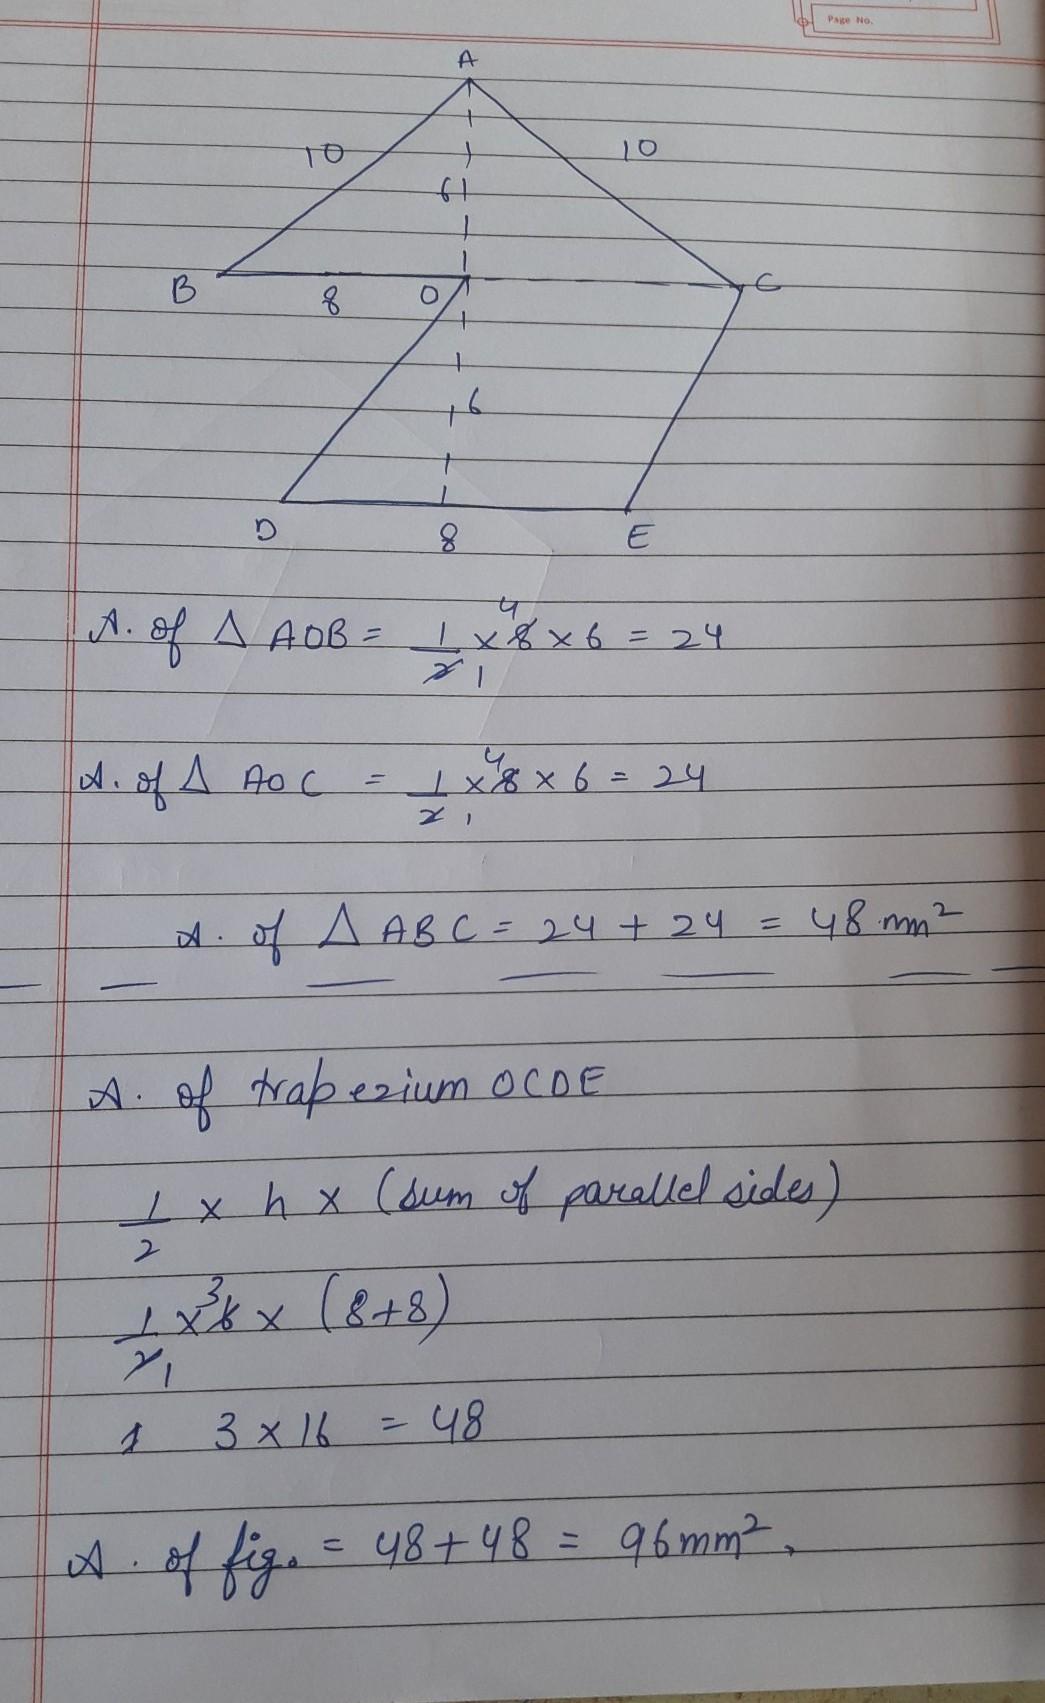 Page No.
A
10
10
6
B
8
O
C
6
D
8
E
A. of △ AOB = 1/2 1 × 8 4 × 6 = 24
A. of △ AOC = 1/2 1 × 8 4 × 6 = 24
A. of △ ABC = 24 + 24 = 48 mm²
A. of trapezium OCDE
1/2 × h × (sum of parallel sides)
1/2 1 × 6 3 × (8+8)
1 3 × 16 = 48
A. of fig. = 48 + 48 = 96 mm².